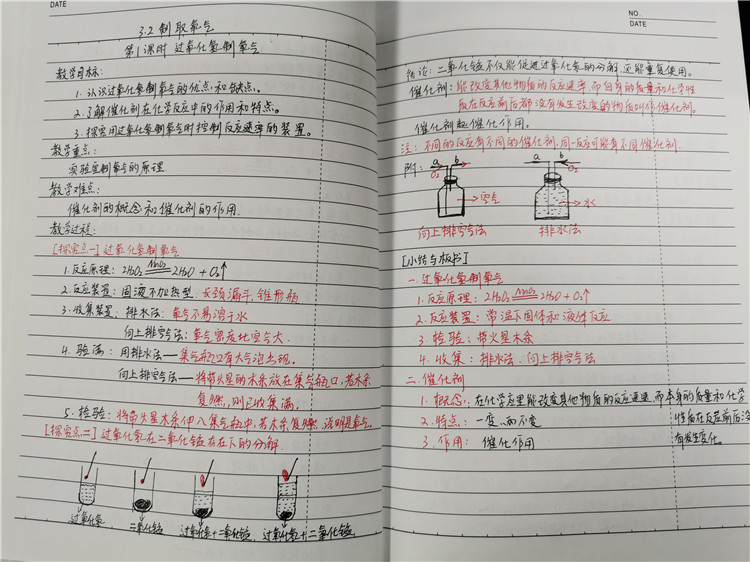 DATE
3.2 制取氧气
第1课时 过氧化氢制氧气
教学目标:
1. 认识过氧化氢制氧气的优点和缺点。
2. 了解催化剂在化学反应中的作用和特点。
3. 探究用过氧化氢制氧气时控制反应速率的装置。
教学重点:
实验室制氧气的原理
教学难点:
催化剂的概念和催化剂的作用.
教学过程:
[探究点一] 过氧化氢制氧气
1. 反应原理: 2H₂O₂ MnO₂ 2H₂O + O₂↑
2. 反应装置: 固液不加热型. 长颈漏斗、锥形瓶
3. 收集装置: 排水法: 氧气不易溶于水
向上排空气法: 氧气密度比空气大.
4. 验满: 用排水法——集气瓶口有大气泡出现.
向上排空气法——将带火星的木条放在集气瓶口, 若木条
复燃, 则已收集满.
5. 检验: 将带火星木条伸入集气瓶中, 若木条复燃, 说明是氧气.
[探究点二] 过氧化氢在二氧化锰存在下的分解
过氧化氢 二氧化锰 过氧化氢+二氧化锰 过氧化氢+二氧化锰
NO.
DATE
结论: 二氧化锰不仅能促进过氧化氢的分解, 还能重复使用。
催化剂: 能改变其他物质的反应速率, 而自身的质量和化学性
质在反应前后都没有发生改变的物质叫作催化剂.
催化剂起催化作用。
注: 不同的反应有不同的催化剂, 同一反应可能有不同催化剂.
附: a b O₂ a b O₂
空气 水
向上排空气法 排水法
[小结与板书]
一. 过氧化氢制氧气
1. 反应原理: 2H₂O₂ MnO₂ 2H₂O + O₂↑
2. 反应装置: 常温下固体和液体反应
3. 检验: 带火星木条
4. 收集: 排水法、向上排空气法
二. 催化剂
1. 概念: 在化学反应里能改变其他物质的反应速率, 而本身的质量和化学
性质在反应前后没
有发生变化.
2. 特点: 一变、两不变
3. 作用: 催化作用